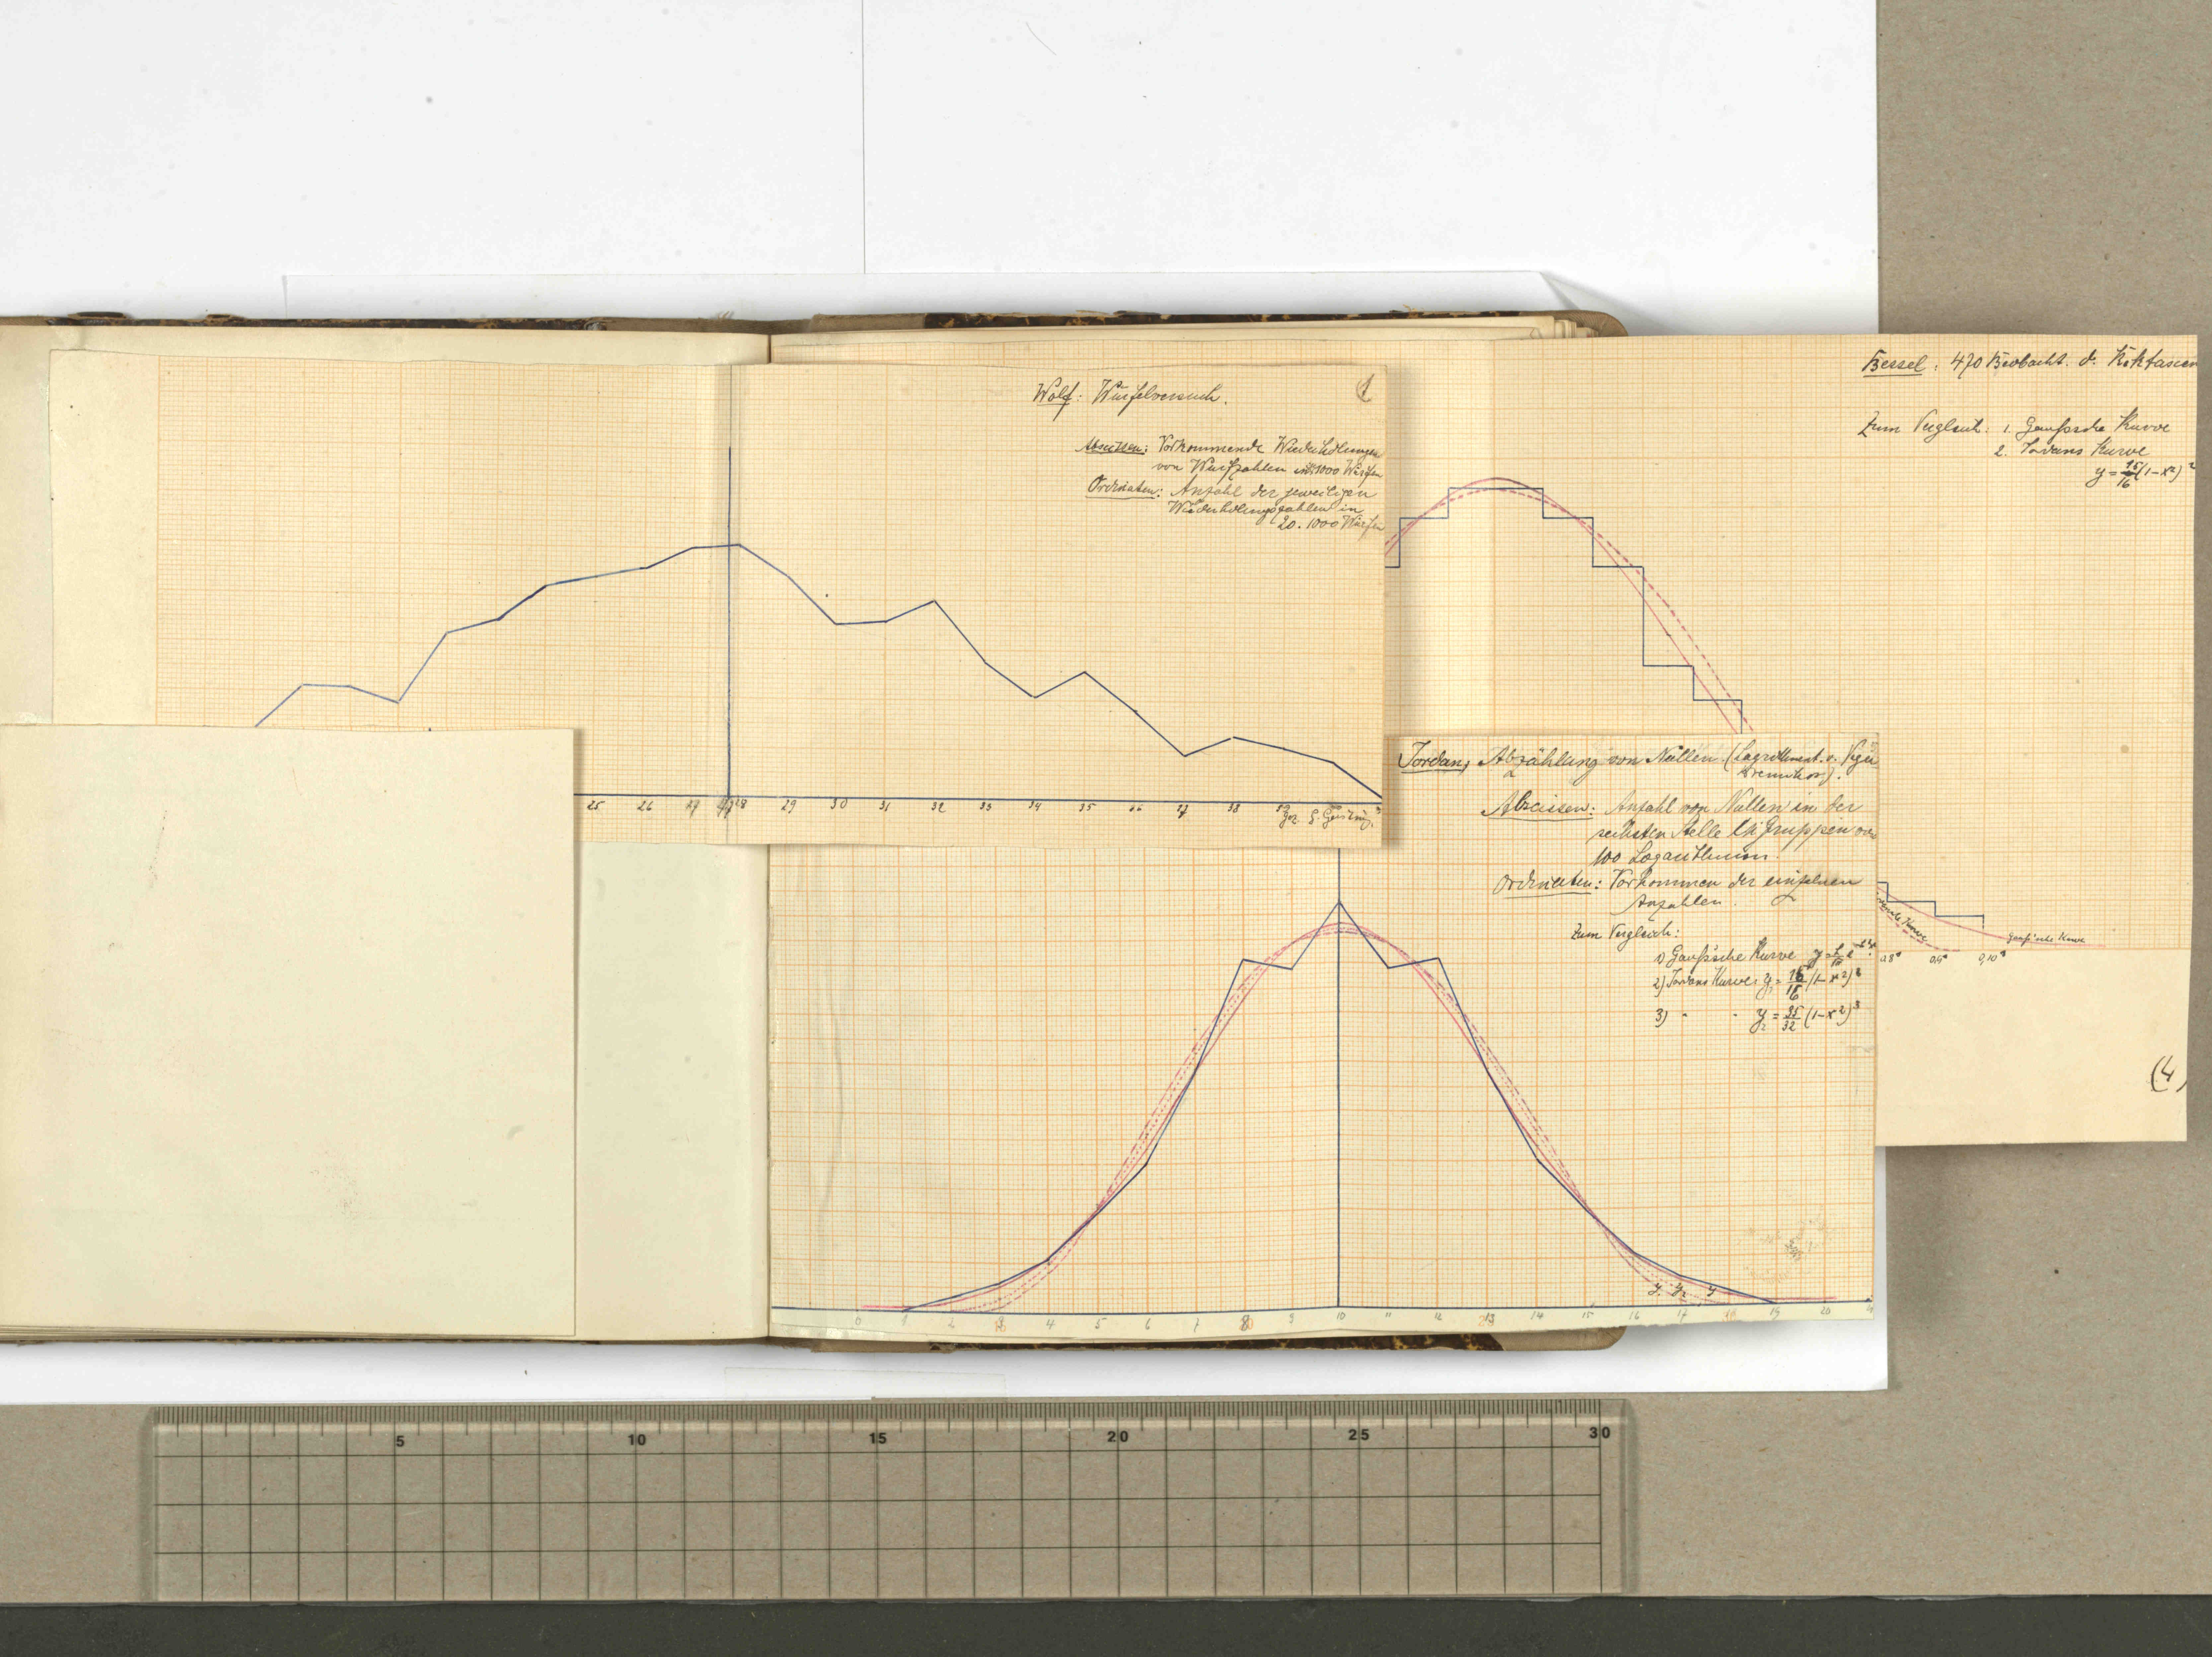 Wolf: Würfelversuch.
1
Abscissen: Vorkommende Wiederholungen
von Wurfzahlen in 1000 Würfen
Ordinaten: Anzahl der jeweiligen
Wiederholungszahlen in
20.1000 Würfen
25 26 27 28 29 30 31 32 33 34 35 36 37 38 39
gez. G.
Bessel: 470 Beobacht. d. Rektascen
Zum Vergleich: 1. Gaußsche Kurve
2. Jordans Kurve
y = 15/16 (1-x²)²
Kurve
Gauß'sche Kurve
0,8" 0,9" 0,10"
(4)
Jordan, Abzählung von Nullen. (Logarithment. v. Vega
Bremiker).
Abscissen: Anzahl von Nullen in der
sechsten Stelle bei Gruppen von
100 Logarithmen.
Ordinaten: Vorkommen der einzelnen
Anzahlen.
Zum Vergleich:
1) Gauß'sche Kurve
2) Jordans Kurve: y₁ = 15/16 (1-x²)²
3) " " y₂ = 35/32 (1-x²)³
y₁ y₂ y
0 1 2 3 4 5 6 7 8 9 10 11 12 13 14 15 16 17 18 19 20 21
5 10 15 20 25 30